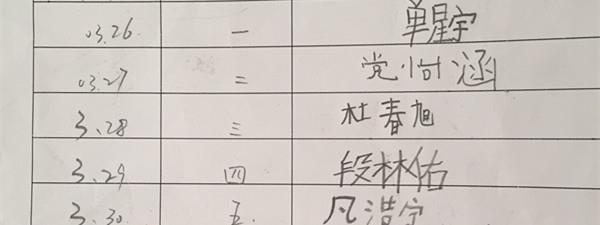 03.26 一 单星宇
03.27 二 党怡涵
3、28 三 杜春旭
3、29 四 段林佑
3、30. 五. 凡浩宇